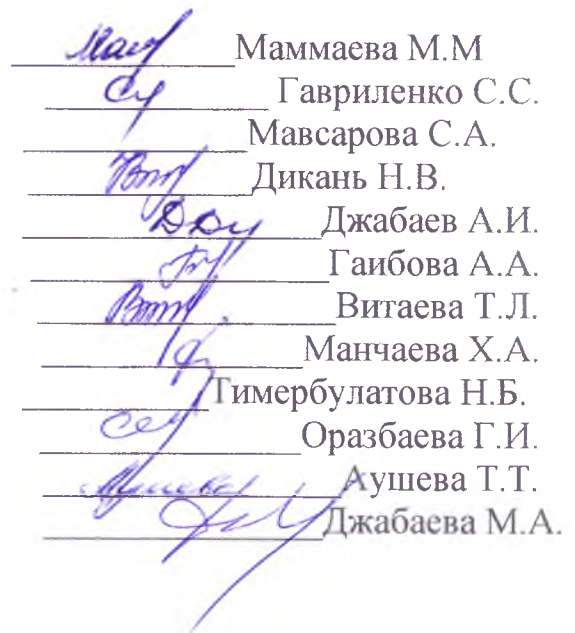 Маммаева М.М
Гавриленко С.С.
Мавсарова С.А.
Дикань Н.В.
Джабаев А.И.
Гаибова А.А.
Витаева Т.Л.
Манчаева Х.А.
Тимербулатова Н.Б.
Оразбаева Г.И.
Аушева Т.Т.
Джабаева М.А.